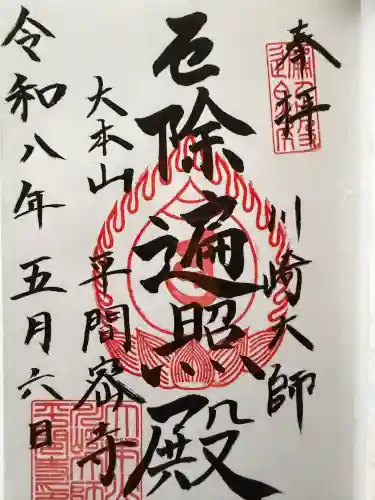 奉拝
川崎大師
厄除遍照殿
大本山
平間密寺
令和八年五月六日